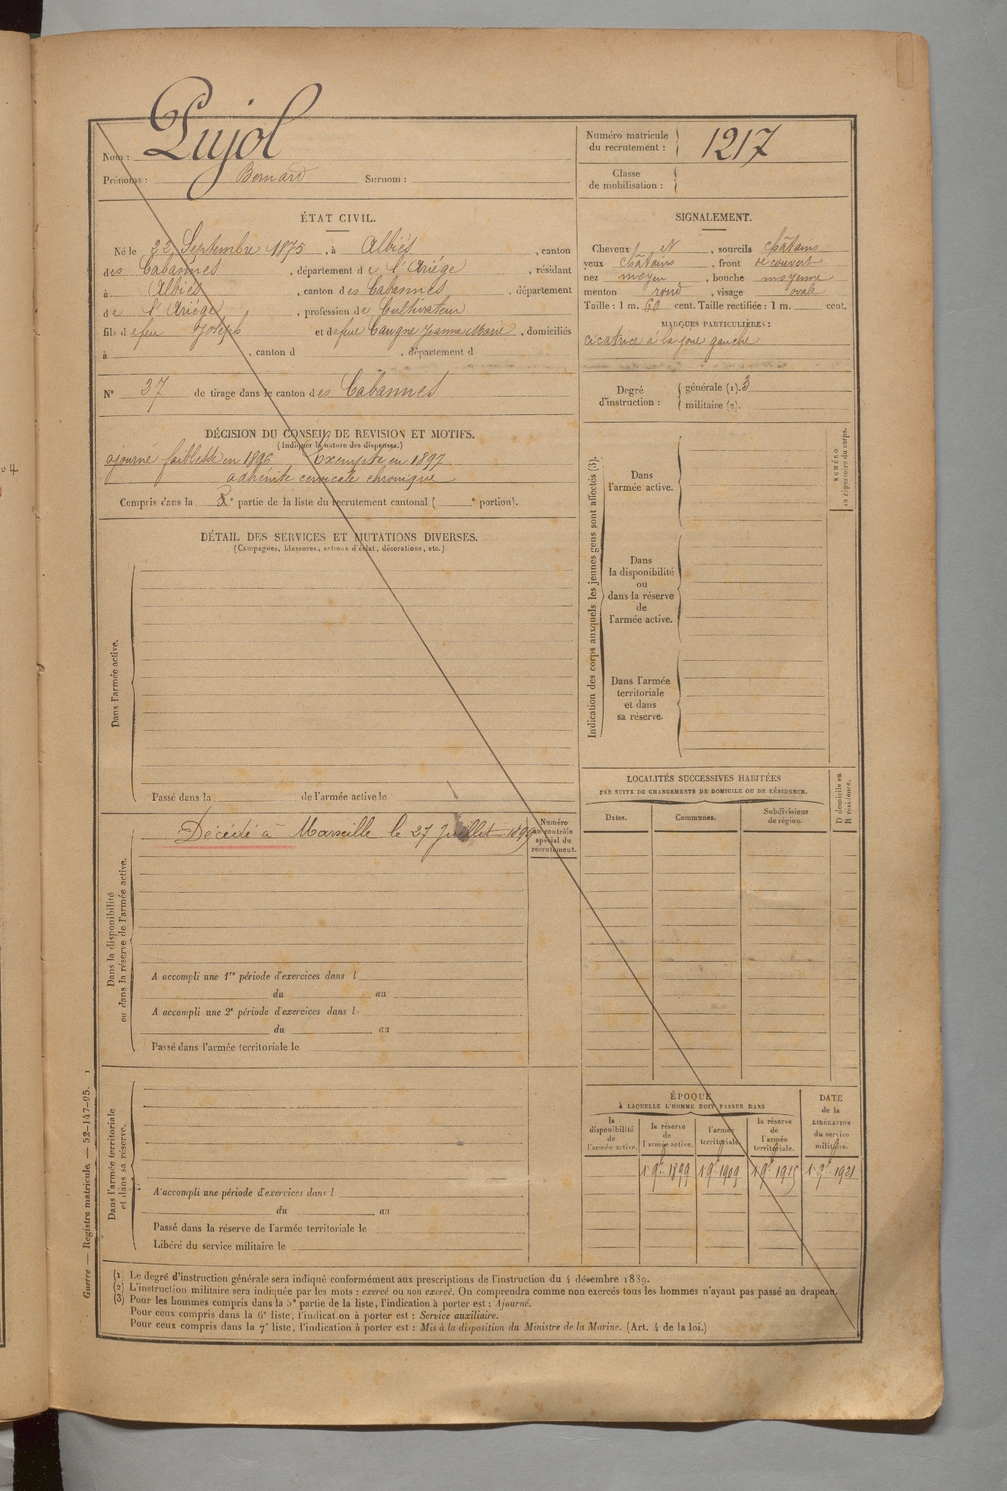 Nom : Pujol
Prénoms : Bernard Surnom :
Numéro matricule du recrutement : 1217
Classe de mobilisation :
ÉTAT CIVIL.
Né le 22 Septembre 1875, à Albiès, canton
des Cabannes, département de l'Ariége, résidant
à Albiès, canton des Cabannes, département
de l'Ariége, profession de Cultivateur
fils de feu Joseph et de feue Jeanne Marie, domiciliés
à , canton d , département d
N° 37 de tirage dans le canton des Cabannes
SIGNALEMENT.
Cheveux et , sourcils châtains
yeux châtains , front découvert
nez moyen , bouche moyenne
menton rond , visage ovale
Taille : 1 m. 60 cent. Taille rectifiée : 1 m. cent.
MARQUES PARTICULIÈRES :
cicatrice à la joue gauche
Degré d'instruction : générale (1). 3
militaire (2).
DÉCISION DU CONSEIL DE REVISION ET MOTIFS.
(Indiquer la nature des dispenses.)
ajourné faiblesse en 1896 Exempté en 1897
adénite cervicale chronique
Compris dans la 2e partie de la liste du recrutement cantonal ( e portion).
DÉTAIL DES SERVICES ET MUTATIONS DIVERSES.
(Campagnes, blessures, actions d'éclat, décorations, etc.)
Dans l'armée active.
Passé dans la de l'armée active le
Décédé à Marseille le 27 Juillet
Numéro au contrôle spécial du recrutement.
Dans la disponibilité ou dans la réserve de l'armée active.
A accompli une 1re période d'exercices dans l
du au
A accompli une 2e période d'exercices dans l
du au
Passé dans l'armée territoriale le
Dans l'armée territoriale et dans sa réserve.
A accompli une période d'exercices dans l
du au
Passé dans la réserve de l'armée territoriale le
Libéré du service militaire le
Indication des corps auxquels les jeunes gens sont affectés (3).
NUMÉRO au répertoire du corps.
Dans
l'armée active.
Dans
la disponibilité
ou
dans la réserve
de
l'armée active.
Dans l'armée
territoriale
et dans
sa réserve.
LOCALITÉS SUCCESSIVES HABITÉES
PAR SUITE DE CHANGEMENTS DE DOMICILE OU DE RÉSIDENCE.
D domicile ou R résidence.
Dates. Communes. Subdivisions de région.
ÉPOQUE
À LAQUELLE L'HOMME DOIT PASSER DANS
la disponibilité de l'armée active.
la réserve de l'armée active.
l'armée territoriale.
la réserve de l'armée territoriale.
DATE de la LIBÉRATION du service militaire.
1 9bre 1899 1 9bre 1909 1 9bre 1915 1 9bre 1921
Guerre — Registre matricule. — 52-147-95. 1
(1) Le degré d'instruction générale sera indiqué conformément aux prescriptions de l'instruction du 4 décembre 1889.
(2) L'instruction militaire sera indiquée par les mots : exercé ou non exercé. On comprendra comme non exercés tous les hommes n'ayant pas passé au drapeau.
(3) Pour les hommes compris dans la 5e partie de la liste, l'indication à porter est : Ajourné.
Pour ceux compris dans la 6e liste, l'indication à porter est : Service auxiliaire.
Pour ceux compris dans la 7e liste, l'indication à porter est : Mis à la disposition du Ministre de la Marine. (Art. 4 de la loi.)